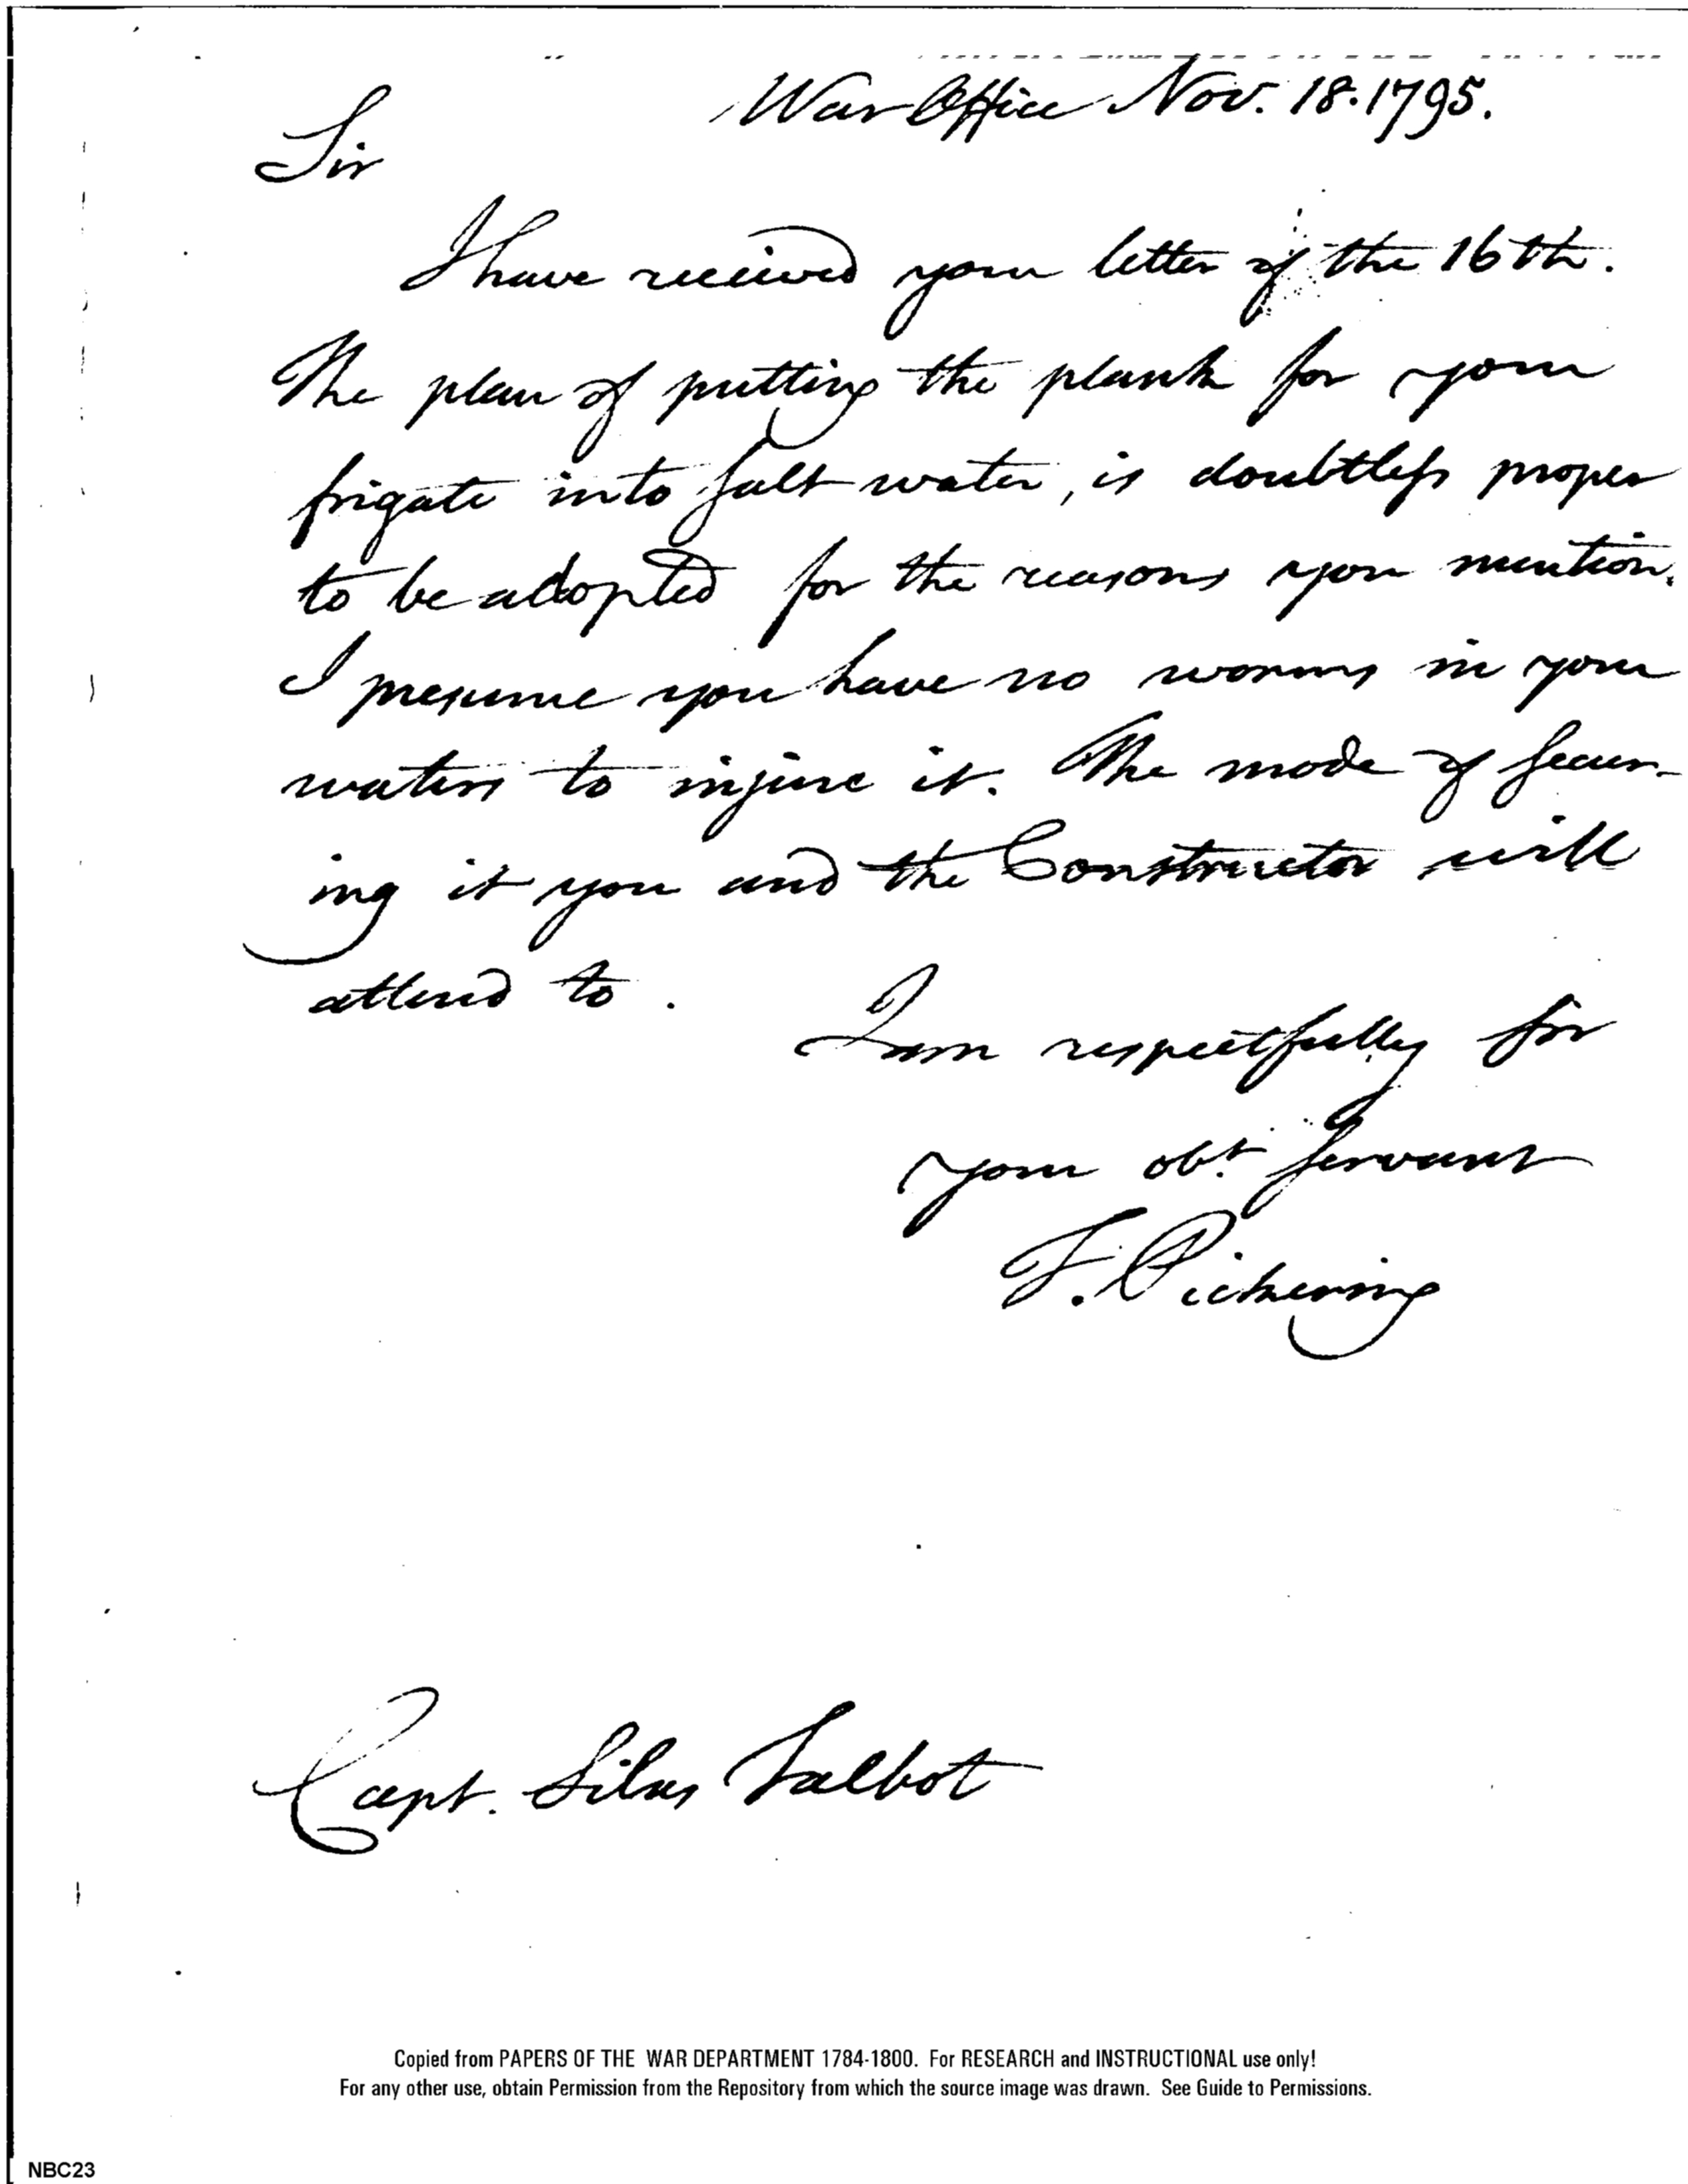 War Office Nov. 18. 1795.
Sir
I have received your letter of the 16th.
The plan of putting the plank for your
frigate into salt water, is doubtless proper
to be adopted for the reasons you mention.
I presume you have no worms in your
waters to injure it. The mode of secur-
ing it you and the Constructor will
attend to.
I am respectfully sir
your obt. servant
T. Pickering
Capt. Silas Talbot
Copied from PAPERS OF THE WAR DEPARTMENT 1784-1800. For RESEARCH and INSTRUCTIONAL use only!
For any other use, obtain Permission from the Repository from which the source image was drawn. See Guide to Permissions.
NBC23